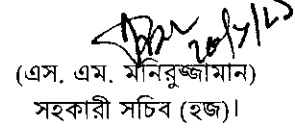 (এস. এম. মনিরুজ্জামান)
সহকারী সচিব (হজ)।